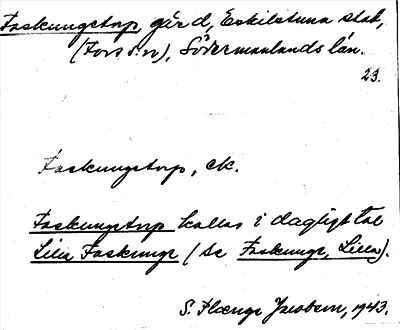 Faskungetorp, gård, Eskilstuna stad,
(Fors s:n), Södermanlands län.
23.
Faskungetorp, ek.
Faskungetorp kallas i dagligt tal
Lilla Faskunge (se Faskunge, Lilla).
S. Plænge Jacobson, 1943.